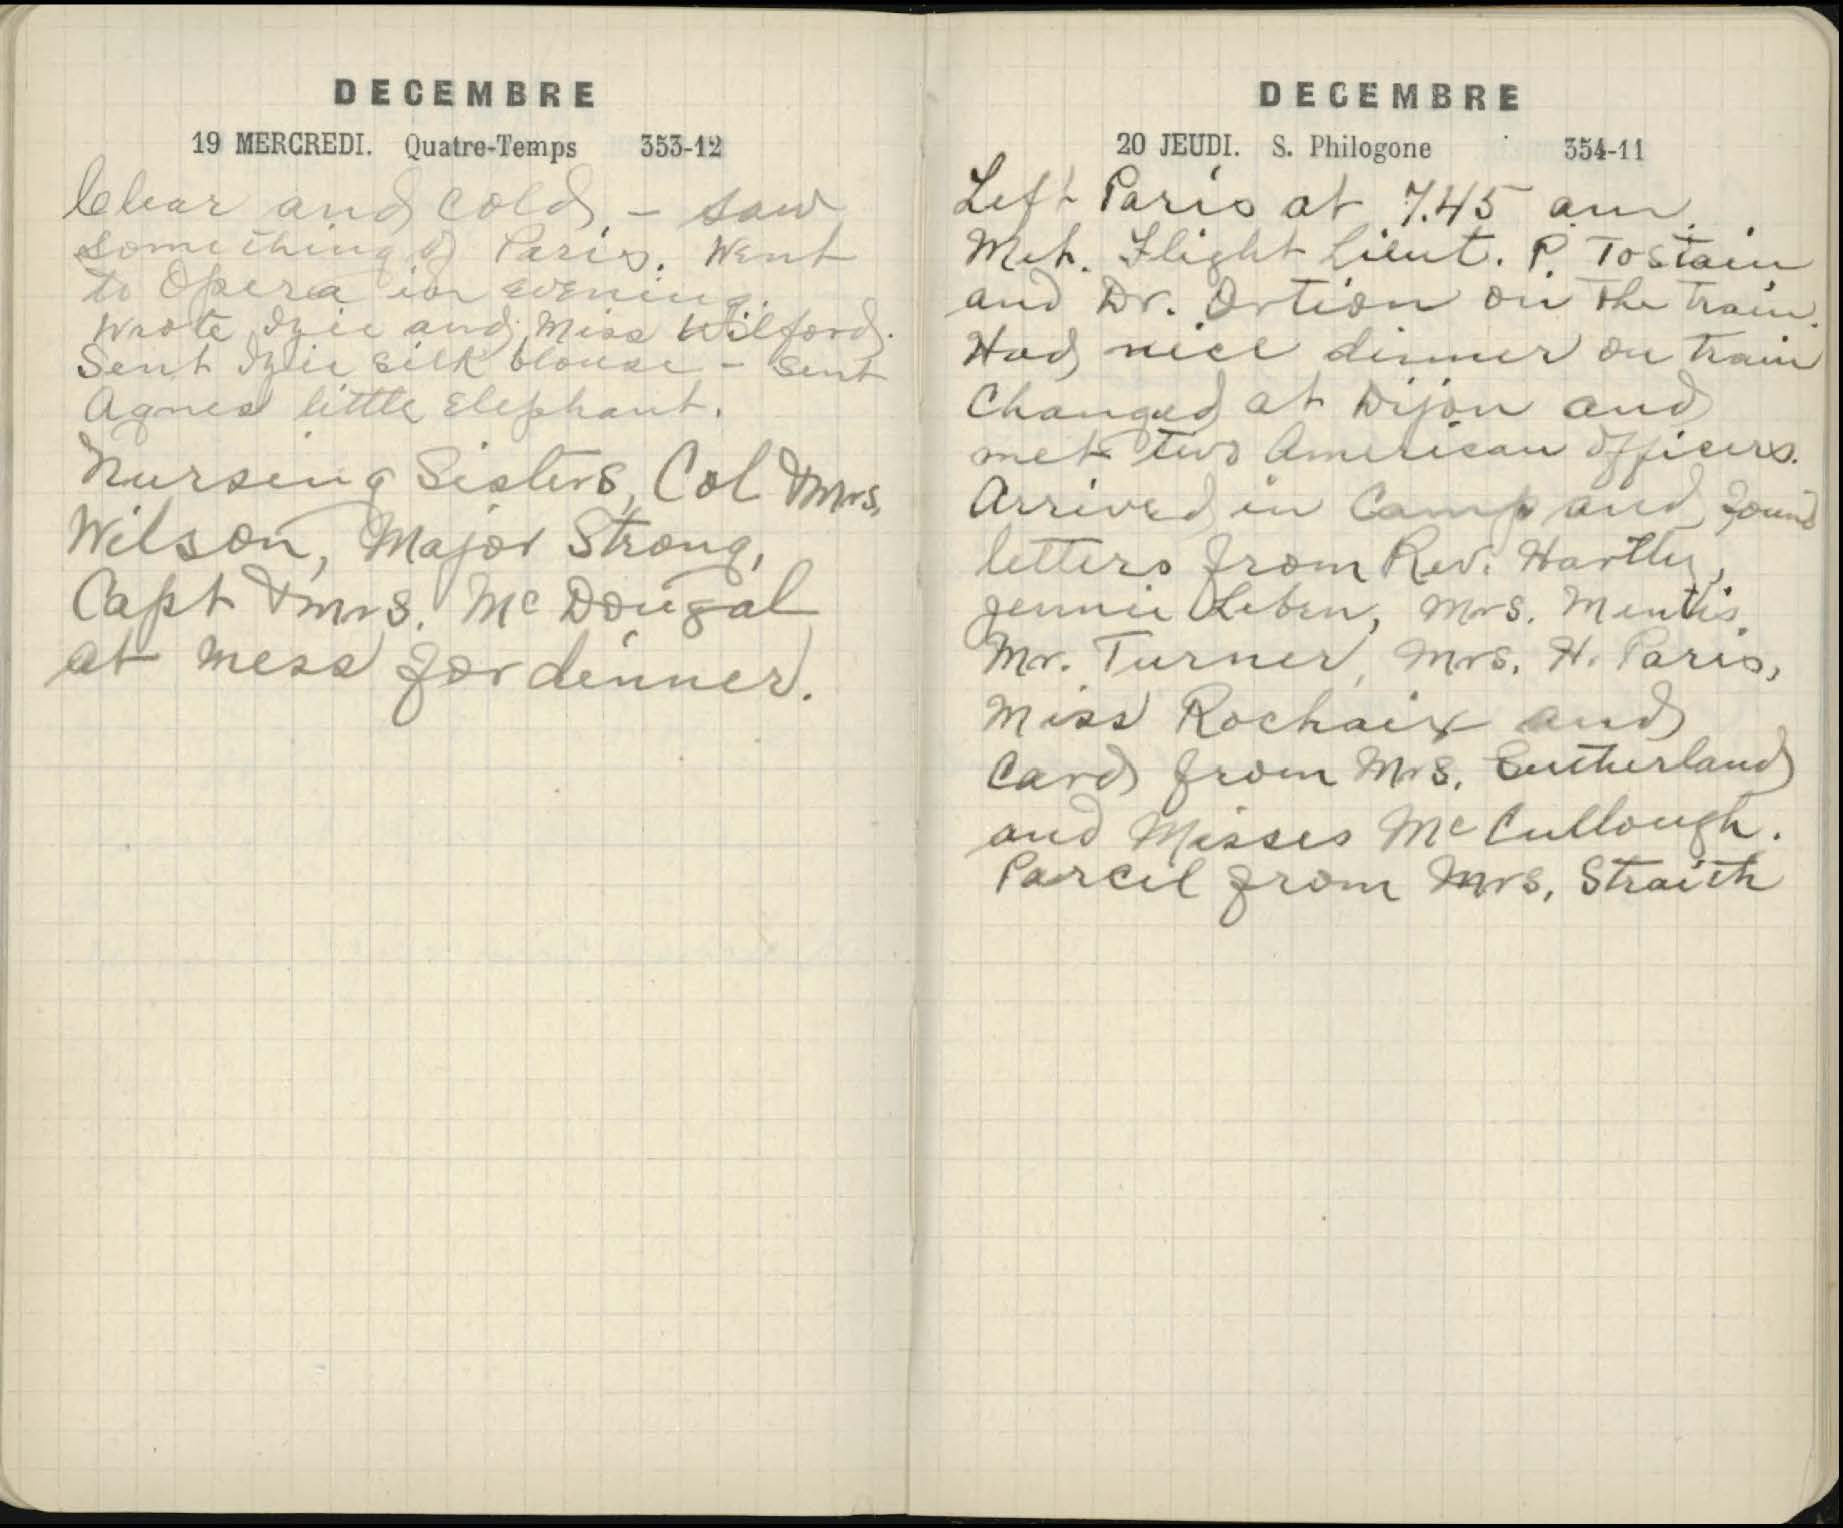 DECEMBRE
19 MERCREDI. Quatre-Temps 353-12
Clear and cold, - saw
something of Paris. Went
to Opera in evening.
Wrote Izie and Miss Wilford.
Sent Izie silk blouse - sent
Agnes little Elephant.
Nursing Sisters, Col & Mrs.
Wilson, Major Strong,
Capt & Mrs. McDougal
at mess for dinner.
DECEMBRE
20 JEUDI. S. Philogone 354-11
Left Paris at 7.45 am.
Met. Flight Lieut. P. Tostain
and Dr. Ortion on the train.
Had nice dinner on train
Changed at Dijon and
met two American Officers.
Arrived in Camp and found
letters from Rev. Hartley,
Jennie Leben, Mrs. Mentis,
Mr. Turner, Mrs. H. Paris,
Miss Rochaix and
Card from Mrs. Sutherland
and Misses McCullough.
Parcel from Mrs. Straith